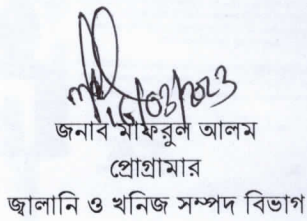 16/03/2023
জনাব মাফরুল আলম
প্রোগ্রামার
জ্বালানি ও খনিজ সম্পদ বিভাগ